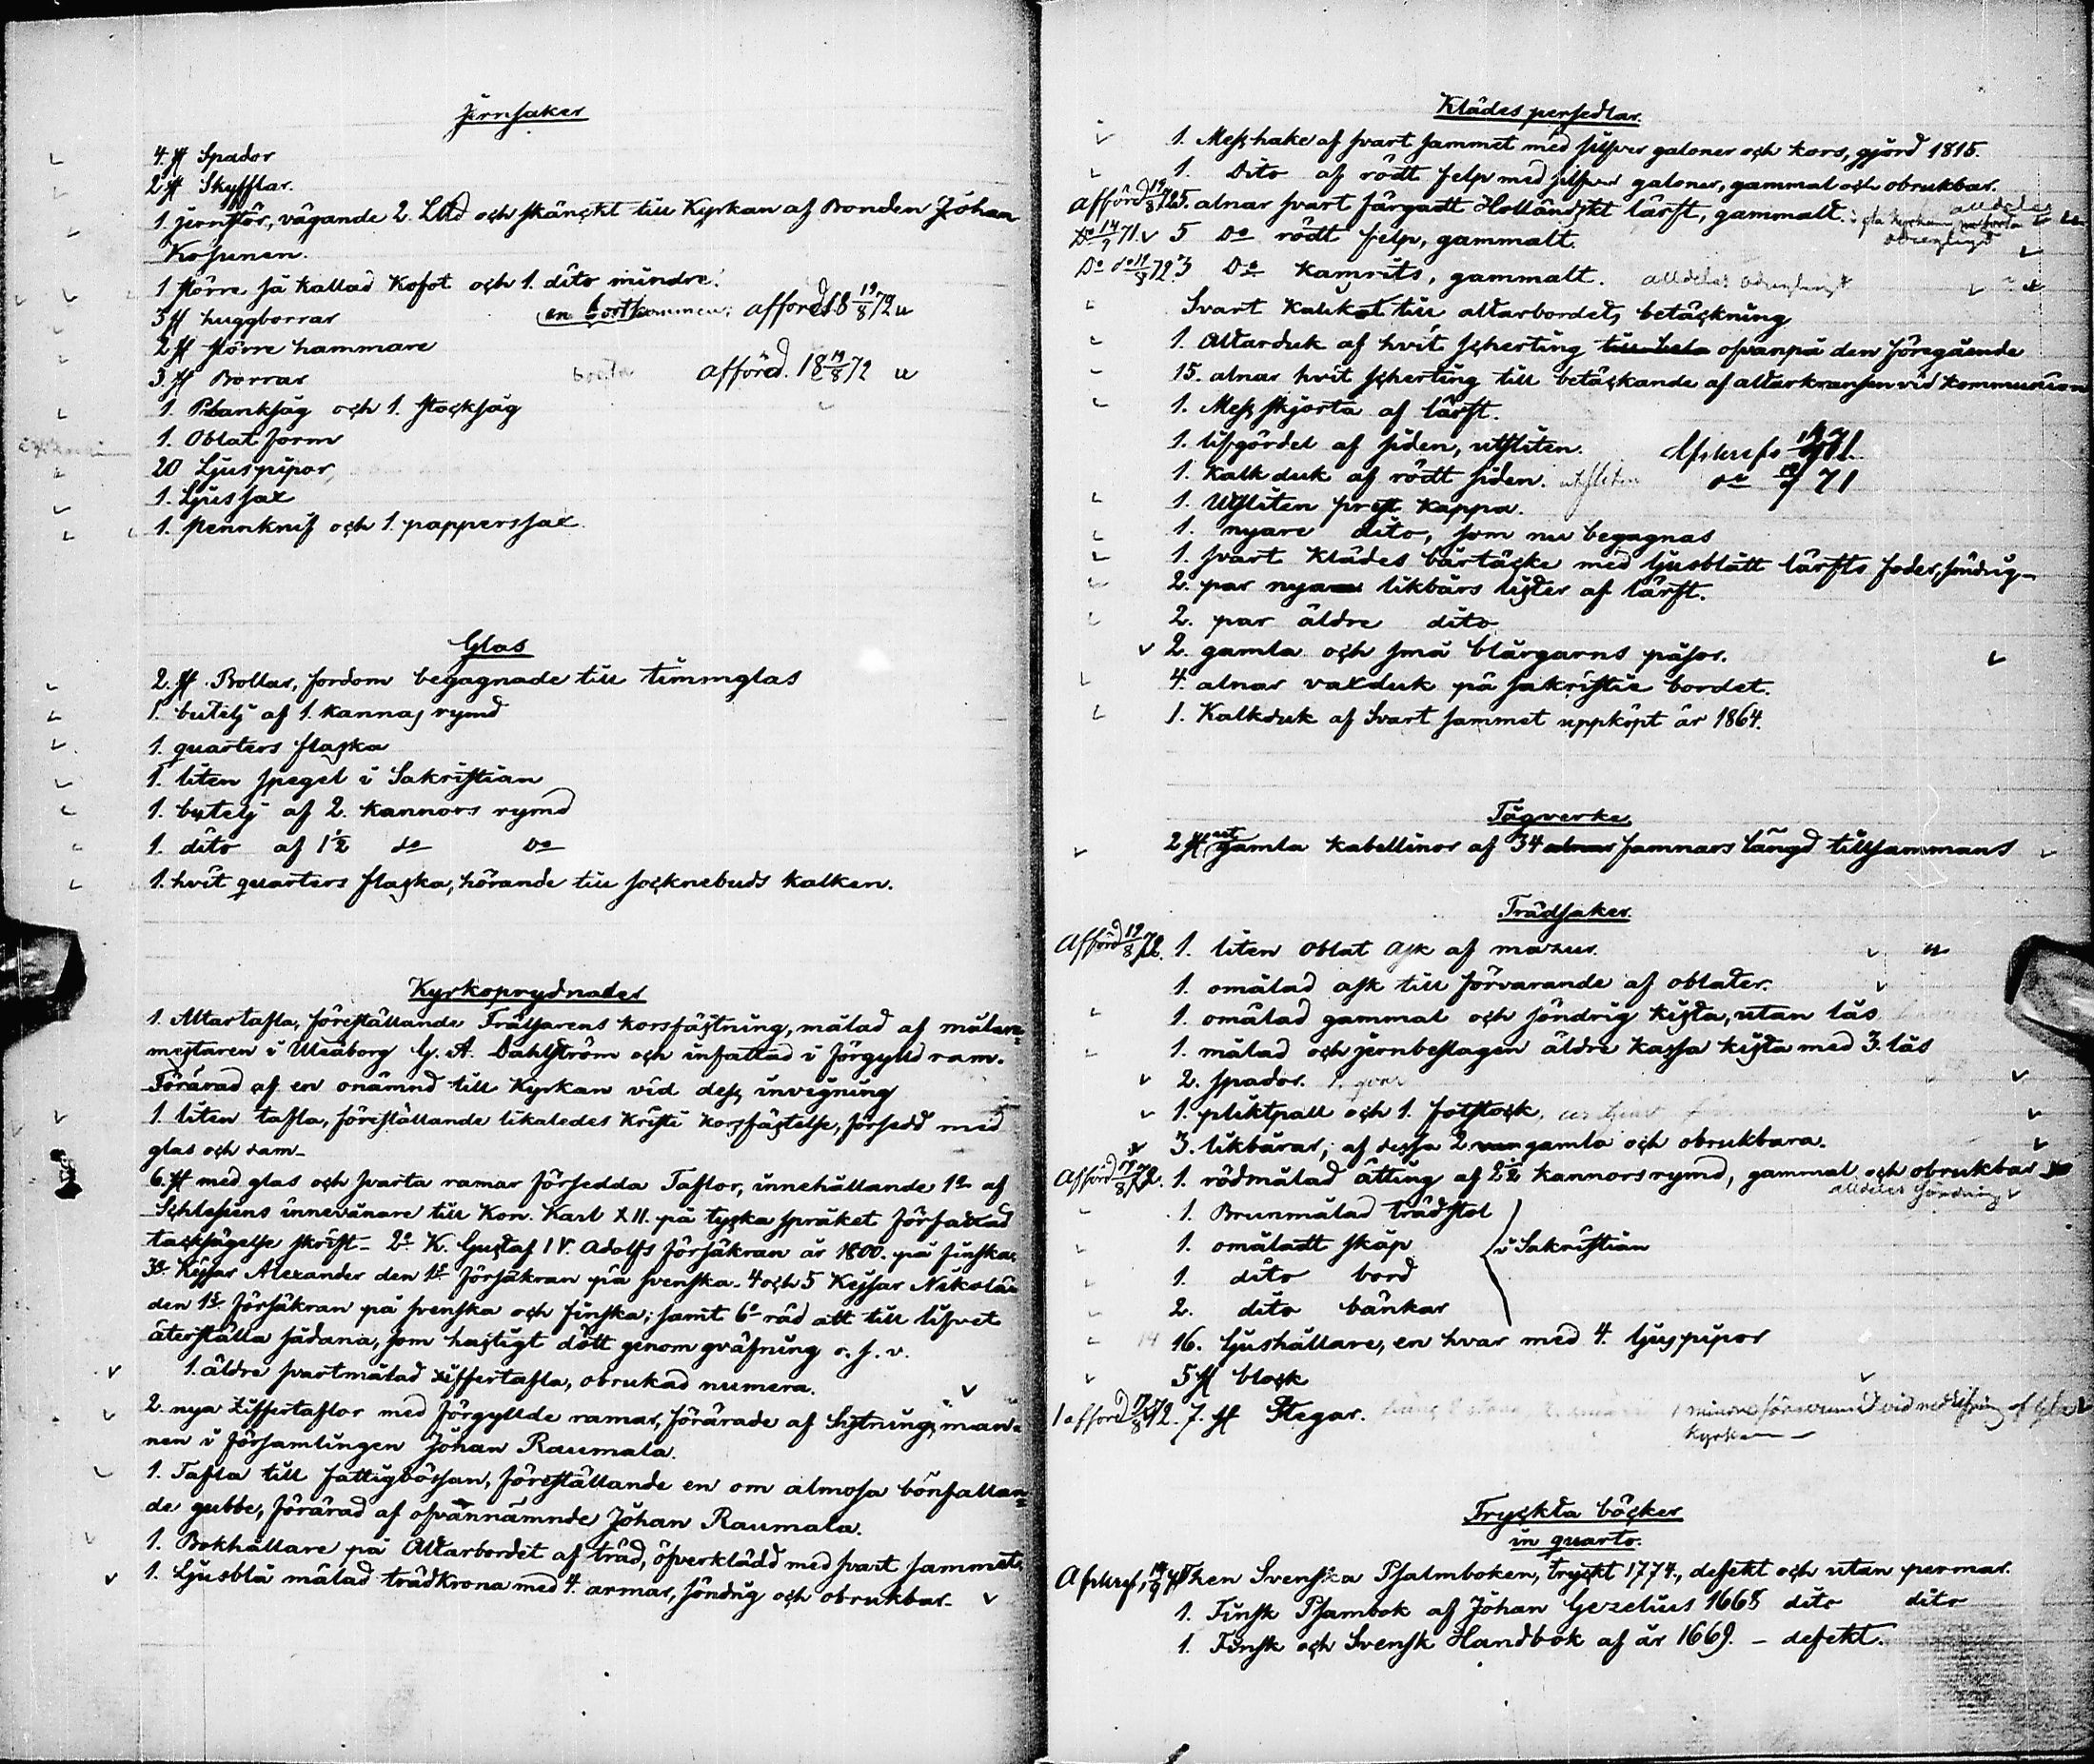 Jernsaker
4. st Spador
2. st Skyfflar.
1. jernstör, vägande 2. LUd och skänckt till Kyrkan af Bonden Johan
Kosunen.
1 större så kallad Kofot och 1. dito mindre.
3 st huggborrar en bortkommen; afförd 18 19/8 72
2 st större hammare
3. st Borrar borta afförd. 18 19/8 72
1. Planksåg och 1. stocksåg
1. Oblat form
20 Ljuspipor
1. Ljussax
1. pennknif och 1. papperssax.
Glas
2. st Bollar, fordom begagnade till timmglas
1. butelj af 1. kannas rymd
1. quarters flaska
1. liten spegel i Sakristian
1. butelj af 2. kannors rymd
1. dito af 1 1/2 do do
1. hvit quarters flaska, hörande till socknebuds kalken.
Kyrkoprydnader
1. Altartafla, föreställande Frälsarens korsfästning, målad af målare-
mestaren i Uleåborg G. A. Dahlström och infattad i förgylld ram.
Förärad af en onämnd till Kyrkan vid dess invigning
1. liten tafla, föreställande likaledes Kristi korsfästelse, försedd med
glas och ram.
6. st med glas och svarta ramar försedda Taflor, innehållande 1o af
Schlesiens innevånare till Kon. Karl XII. på tyska språket författad
tacksägelse skrift. 2o K. Gustaf IV. Adolfs försäkran år 1800. på finska.
3o Kejsar Alexander den 1s försäkran på svenska. 4 och 5 Kejsar Nikolai
den 1s försäkran på svenska och finska; samt 6o råd att till lifvet
återställa sådana, som hastigt dött genom qväfning o. s. v.
1. äldre svartmålad ziffertafla, obrukad numera.
2. nya Ziffertaflor med förgyllde ramar, förärade af Sytningsman-
nen i församlingen Johan Raumala.
1. Tafla till fattigbössan, föreställande en om almosa bönfallan-
de gubbe, förärad af ofvannämnde Johan Raumala.
1. Bokhållare på Altarbordet af träd, öfverklädd med svart sammet.
1. Ljusblå målad trädkrona med 4. armar, söndrig och obrukbar.
Klädes persedlar.
1. Messhake af svart sammet med silfver galoner och kors, gjord 1815.
1. Dito af rödt felp med silfver galoner, gammal och obrukbar.
afförd 19/8 72 5. alnar svart färgadt Holländskt lärft, gammalt. alldeles
odugligt
Do 14/9 71. 5 Do rödt felp, gammalt.
Do do 19/8 72. 3 Do kamrits, gammalt. alldeles odugligt
Svart kalikot till altarbordets betäckning
1. Altarduk af hvit scherting till hela ofvanpå den föregående
15. alnar hvit scherting till betäckande af altarkransen vid kommunion
1. Messskjorta af lärft.
1. lifgördel af siden, utsliten. Afskrefs 14/9 71.
1. Kalkduk af rödt siden. utsliten do 14/9 71
1. Utsliten prest kappa.
1. nyare dito, som nu begagnas
1. svart klädes bärtäcke med ljusblått lärfts foder, söndrig
2. par nya likbärs lister af lärft.
2. par äldre dito
2. gamla och små blårgarns påsar.
4. alnar vaxduk på sakristie bordet.
1. Kalkduk af Svart sammet uppköpt år 1864.
Tågverke
2 st utgamla kabellinor af 34 alnar famnars längd tillsammans
Trädsaker.
Afförd 19/8 72. 1. liten Oblat Ask af mazur.
1. omålad ask till förvarande af oblater.
1. omålad gammal och söndrig kista, utan lås
1. målad och jernbeslagen äldre kassa kista med 3. lås
2. spador. 1. qvar
1. pliktpall och 1. fotstock,
3. likbårar, af dessa 2 gamla och obrukbara.
Afförd 19/8 72. 1. rödmålad åtting af 2 1/2 kannors rymd, gammal och obrukbar
alldeles söndrig
1. Brunmålad trädstol
1. omåladt skåp i Sakristian
1. dito bord
2. dito bänkar
14 16. ljushållare, en hvar med 4. ljuspipor
5 st block
1 afförd 19/8 72. 7. st Stegar. 1 mindre försvunnit vid nedrifning af gla
kyrkan
Tryckta böcker
in quarto.
Afskref. 14/9 71 Then Svenska Psalmboken, tryckt 1774., defekt och utan permar.
1. Finsk Psambok af Johan Gezelius 1668 dito dito
1. Finsk och Svensk Handbok af år 1669. – defekt.